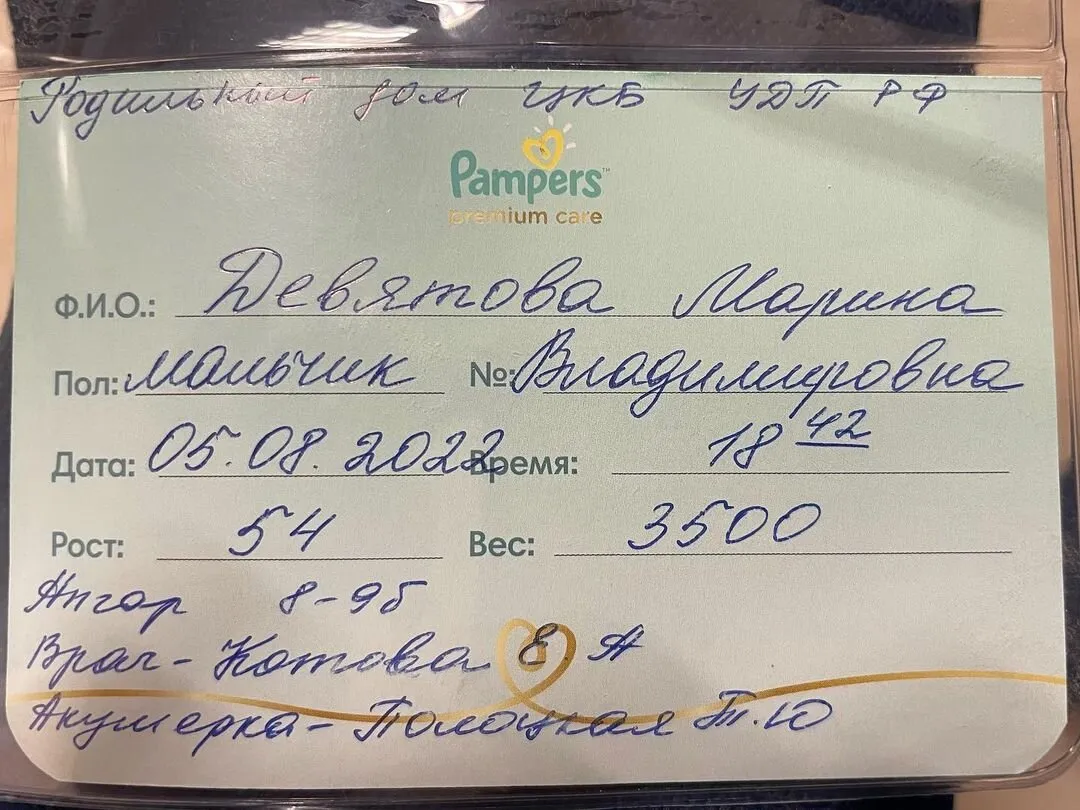 Родильный дом ЦКБ УДП РФ
Pampers™
premium care
Ф.И.О.: Девятова Марина
Пол: мальчик №: Владимировна
Дата: 05.08.2022 Время: 18 42
Рост: 54 Вес: 3500
Апгар 8-9б
Врач- Котова Е А
Акушерка- Полоцкая Т.Ю